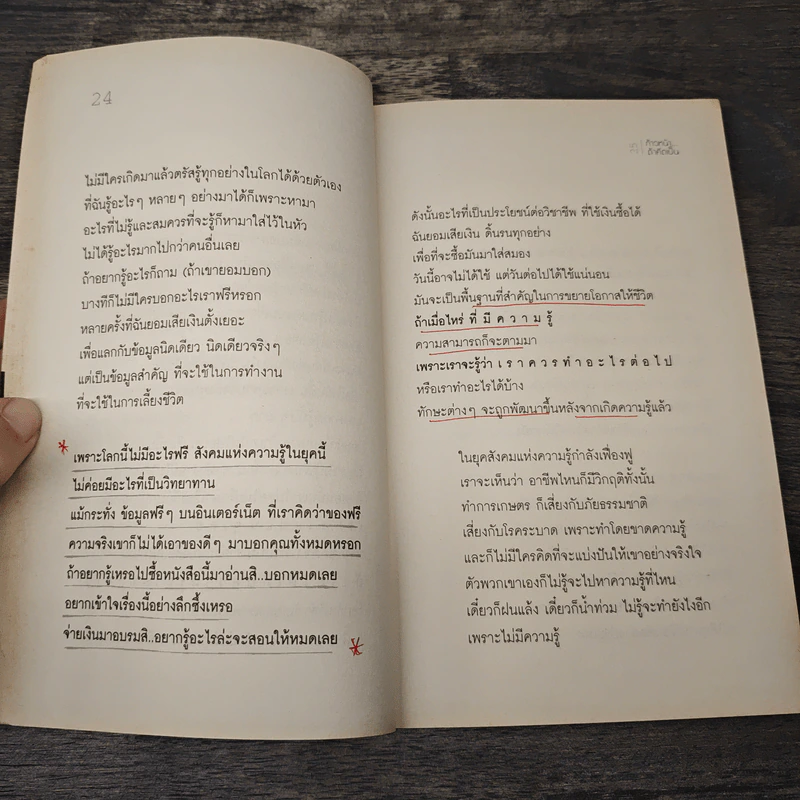 24
ไม่มีใครเกิดมาแล้วตรัสรู้ทุกอย่างในโลกได้ด้วยตัวเอง
ที่ฉันรู้อะไรๆ หลายๆ อย่างมาได้ก็เพราะหามา
อะไรที่ไม่รู้และสมควรที่จะรู้ก็หามาใส่ไว้ในหัว
ไม่ได้รู้อะไรมากไปกว่าคนอื่นเลย
ถ้าอยากรู้อะไรก็ถาม (ถ้าเขายอมบอก)
บางทีก็ไม่มีใครบอกอะไรเราฟรีหรอก
หลายครั้งที่ฉันยอมเสียเงินตั้งเยอะ
เพื่อแลกกับข้อมูลนิดเดียว นิดเดียวจริงๆ
แต่เป็นข้อมูลสำคัญ ที่จะใช้ในการทำงาน
ที่จะใช้ในการเลี้ยงชีวิต
เพราะโลกนี้ไม่มีอะไรฟรี สังคมแห่งความรู้ในยุคนี้
ไม่ค่อยมีอะไรที่เป็นวิทยาทาน
แม้กระทั่ง ข้อมูลฟรีๆ บนอินเตอร์เน็ต ที่เราคิดว่าของฟรี
ความจริงเขาก็ไม่ได้เอาของดีๆ มาบอกคุณทั้งหมดหรอก
ถ้าอยากรู้เหรอไปซื้อหนังสือนี้มาอ่านสิ..บอกหมดเลย
อยากเข้าใจเรื่องนี้อย่างลึกซึ้งเหรอ
จ่ายเงินมาอบรมสิ..อยากรู้อะไรล่ะจะสอนให้หมดเลย
ดังนั้นอะไรที่เป็นประโยชน์ต่อวิชาชีพ ที่ใช้เงินซื้อได้
ฉันยอมเสียเงิน ดิ้นรนทุกอย่าง
เพื่อที่จะซื้อมันมาใส่สมอง
วันนี้อาจไม่ได้ใช้ แต่วันต่อไปได้ใช้แน่นอน
มันจะเป็นพื้นฐานที่สำคัญในการขยายโอกาสให้ชีวิต
ถ้าเมื่อไหร่ ที่ มี ค ว า ม รู้
ความสามารถก็จะตามมา
เพราะเราจะรู้ว่า เ ร า ค ว ร ทำ อ ะ ไ ร ต่ อ ไ ป
หรือเราทำอะไรได้บ้าง
ทักษะต่างๆ จะถูกพัฒนาขึ้นหลังจากเกิดความรู้แล้ว
ในยุคสังคมแห่งความรู้กำลังเฟื่องฟู
เราจะเห็นว่า อาชีพไหนก็มีวิกฤติทั้งนั้น
ทำการเกษตร ก็เสี่ยงกับภัยธรรมชาติ
เสี่ยงกับโรคระบาด เพราะทำโดยขาดความรู้
และก็ไม่มีใครคิดที่จะแบ่งปันให้เขาอย่างจริงใจ
ตัวพวกเขาเองก็ไม่รู้จะไปหาความรู้ที่ไหน
เดี๋ยวก็ฝนแล้ง เดี๋ยวก็น้ำท่วม ไม่รู้จะทำยังไงอีก
เพราะไม่มีความรู้